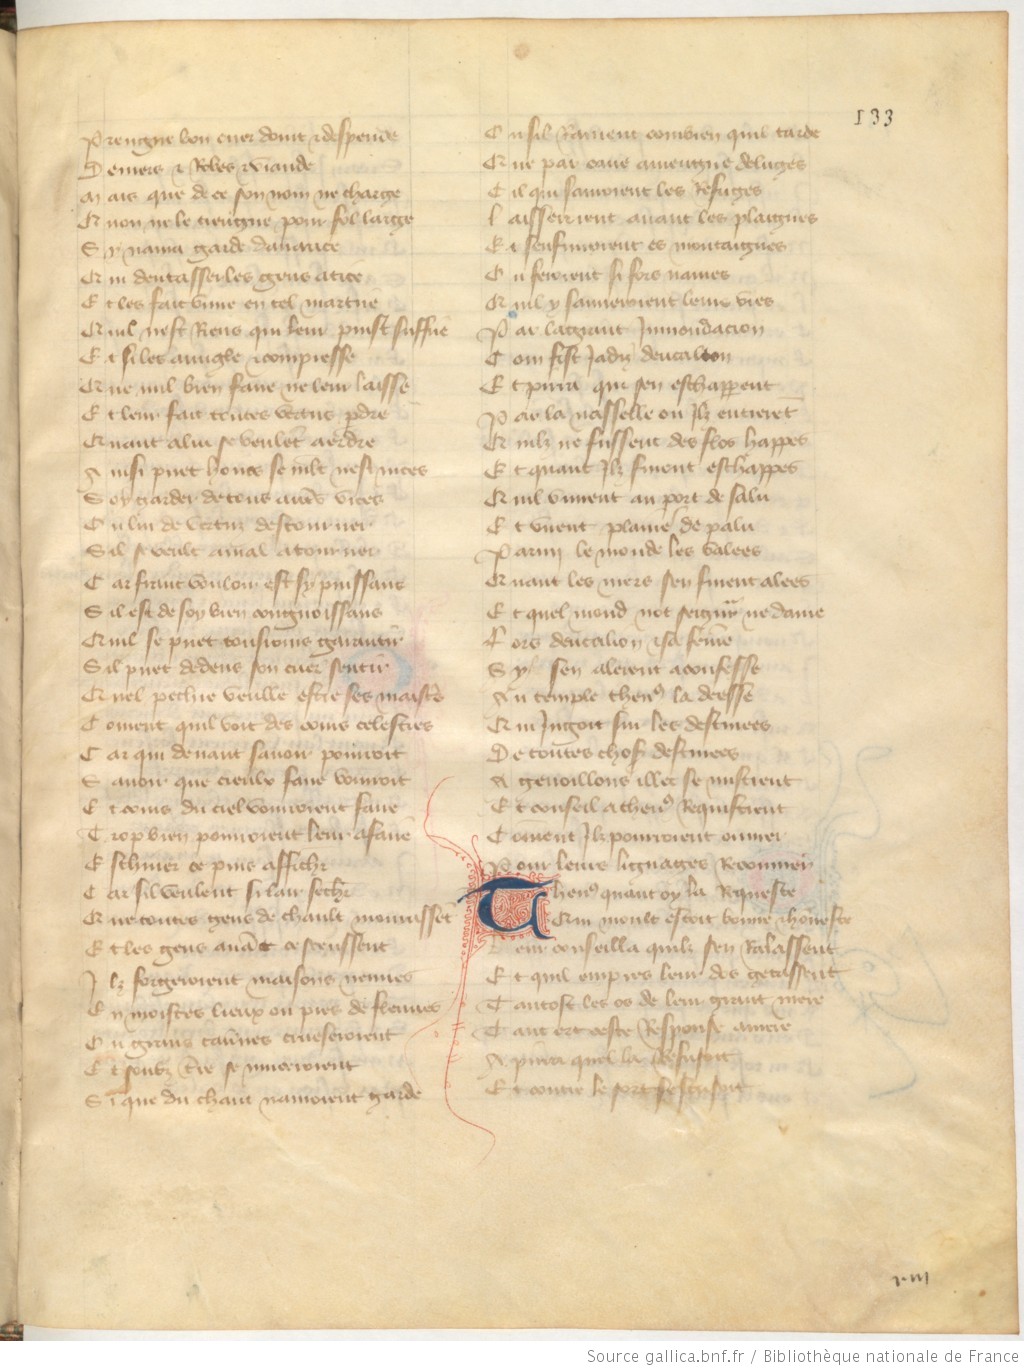 133
Prengne bon cuer doint et despende
Deniers et Robes et viande
Mais que de ce son nom ne charge
Qu on ne le tiengne pour fol large
Si nama garde davarice
Qui dentasser les gens atice
Et les fait vivre en tel martire
Quil nest Riens qui leur puist suffire
Et si les avugle et compresse
Que nul bien faire ne leur laisse
Et leur fait toutes vertus perdre
Quant a lui se veulent aerdre
Ainsi puet homs se mlt nest nices
Soy garder de tous autres vices
Ou lui de vertuz destourner
Sil se veult a mal atourner
Car franc vouloir est sy puissans
Sil est de soy bien congnoissans
Quil se puet tousiours garantir
Sil puet dedens son cuer sentir
Que pechie veulle estre ses maistre
Coment quil voit des corps celestres
Car qui devant savoir pourroit
Savoir que cieulx faire vourroit
Et corps du ciel vourroient faire
Trop bien pourroient leur afaire
Car sil veulent si lair sechr
Que toutes gens de chault mourussent
Et les gens avant ce sceussent
Ilz forgeroient maisons neuves
En moistes lieux ou pres de fleuves
Ou grans cavernes cruseroient
Et soubz terre se muceroient
Si que du chaut navroient garde
Ou sil Ravient combien quil tarde
Que par eaue aviengne deluges
Cil qui savroient les Refuges
Laisserroient avant les plaignes
Et senfuiroient es montaignes
Ou feroient si fors naves
Quil y sauveroient leurs vies
Par la grant Innondacion
Com fist Jadiz deucalion
Et pirra qui sen eschappent
Par la nasselle ou Ilz entrerent
Quilz ne fussent des flos happes
Et quant Ilz furent eschappes
Quil vindrent au port de salu
Et virent plaines de palu
Parmy le monde les valees
Quant les mers sen furent alees
Et quel mond not seigneur ne dame
Fors deucalion et sa feme
Sy sen alerent a confesse
Au temple themis la deesse
Qui Jugoit sur les destinees
De toutes choses destinees
A genoillons illec se mistrent
Et conseil a themis Requistrent
Coment Ilz pourroient ouvrer
Pour leurs lignages Recouvrer
Themis quant oy la Requeste
Qui moult estoit bonne et honneste
Leur conseilla quilz sen Ralassent
Et quil empres leur dos getassent
Tantost les os de leur grant mere
Tant ert ceste Response amere
A pirra quel la Refusoit
Et contre le sort sescusoit